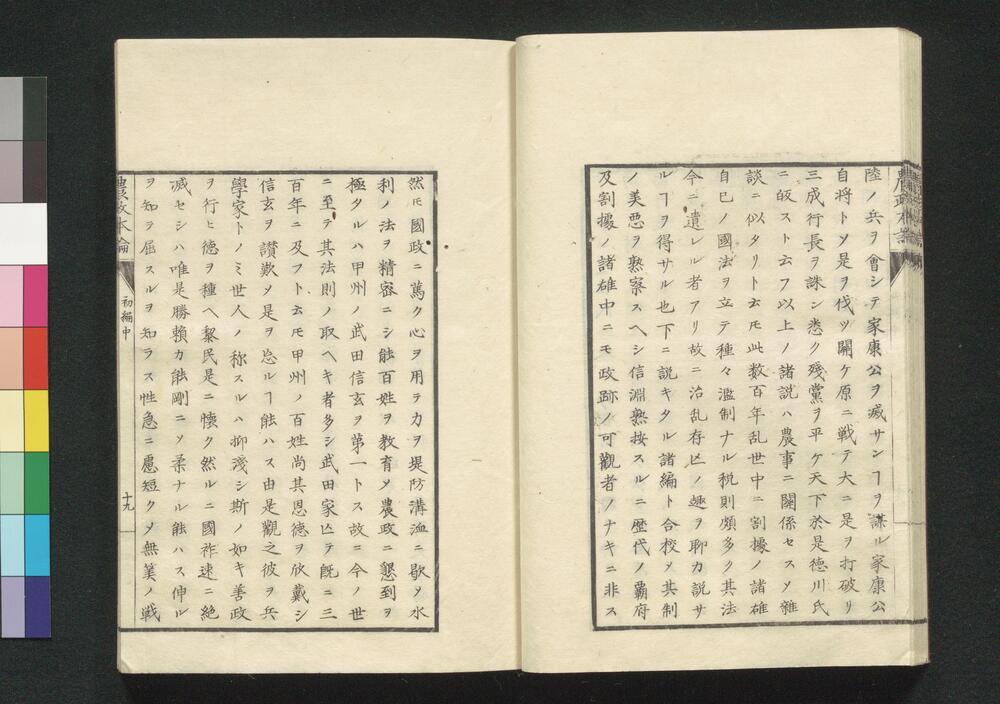 陸ノ兵ヲ會シテ家康公ヲ滅サンヿヲ謀ル家康公
自將トソ是ヲ伐ツ關ケ原ニ戰テ大ニ是ヲ打破リ
三成行長ヲ誅ン悉ク殘黨ヲ平ケ天下於是德川氏
ニ皈スト云フ以上ノ諸説ハ農事ニ關係セスソ雜
談ニ似タリト云モ此数百年乱世中ニ割據ノ諸雄
自己ノ國法ヲ立テ種々濫制ナル税則頗多ク其法
今ニ遺レル者アリ故ニ治乱存亡ノ趣ヲ聊カ説サ
ルヿヲ得サル也下ニ説キタル諸編ト合校メ其制
ノ美悪ヲ熟察スヘシ信淵熟按スルニ歴代ノ覇府
及割據ノ諸雄中ニモ政跡ノ可觀者ノナキニ非ス
然モ國政ニ篤ク心ヲ用テ力ヲ堤防溝洫ニ歇ソ水
利ノ法ヲ精密ニシ能百姓ヲ教育メ農政ニ懇到ヲ
極タルハ甲州ノ武田信玄ヲ第一トス故ニ今ノ世
ニ至テ其法則ノ取ヘキ者多シ武田家亡テ既ニ三
百年ニ及フト云モ甲州ノ百姓尚其恩德ヲ欣戴シ
信玄ヲ讃歎メ是ヲ忘ルヿ能ハス由是觀之彼ヲ兵
學家トノミ世人ノ称スルハ抑淺シ斯ノ如キ善政
ヲ行ヒ德ヲ種ヘ黎民是ニ懷ク然ルニ國祚速ニ絶
滅セシハ唯是勝賴カ能剛ニソ柔ナル能ハス伸ル
ヲ知テ屈スルヲ知ラス性急ニ慮短クメ無筭ノ戦
農政本論
初編中
十九